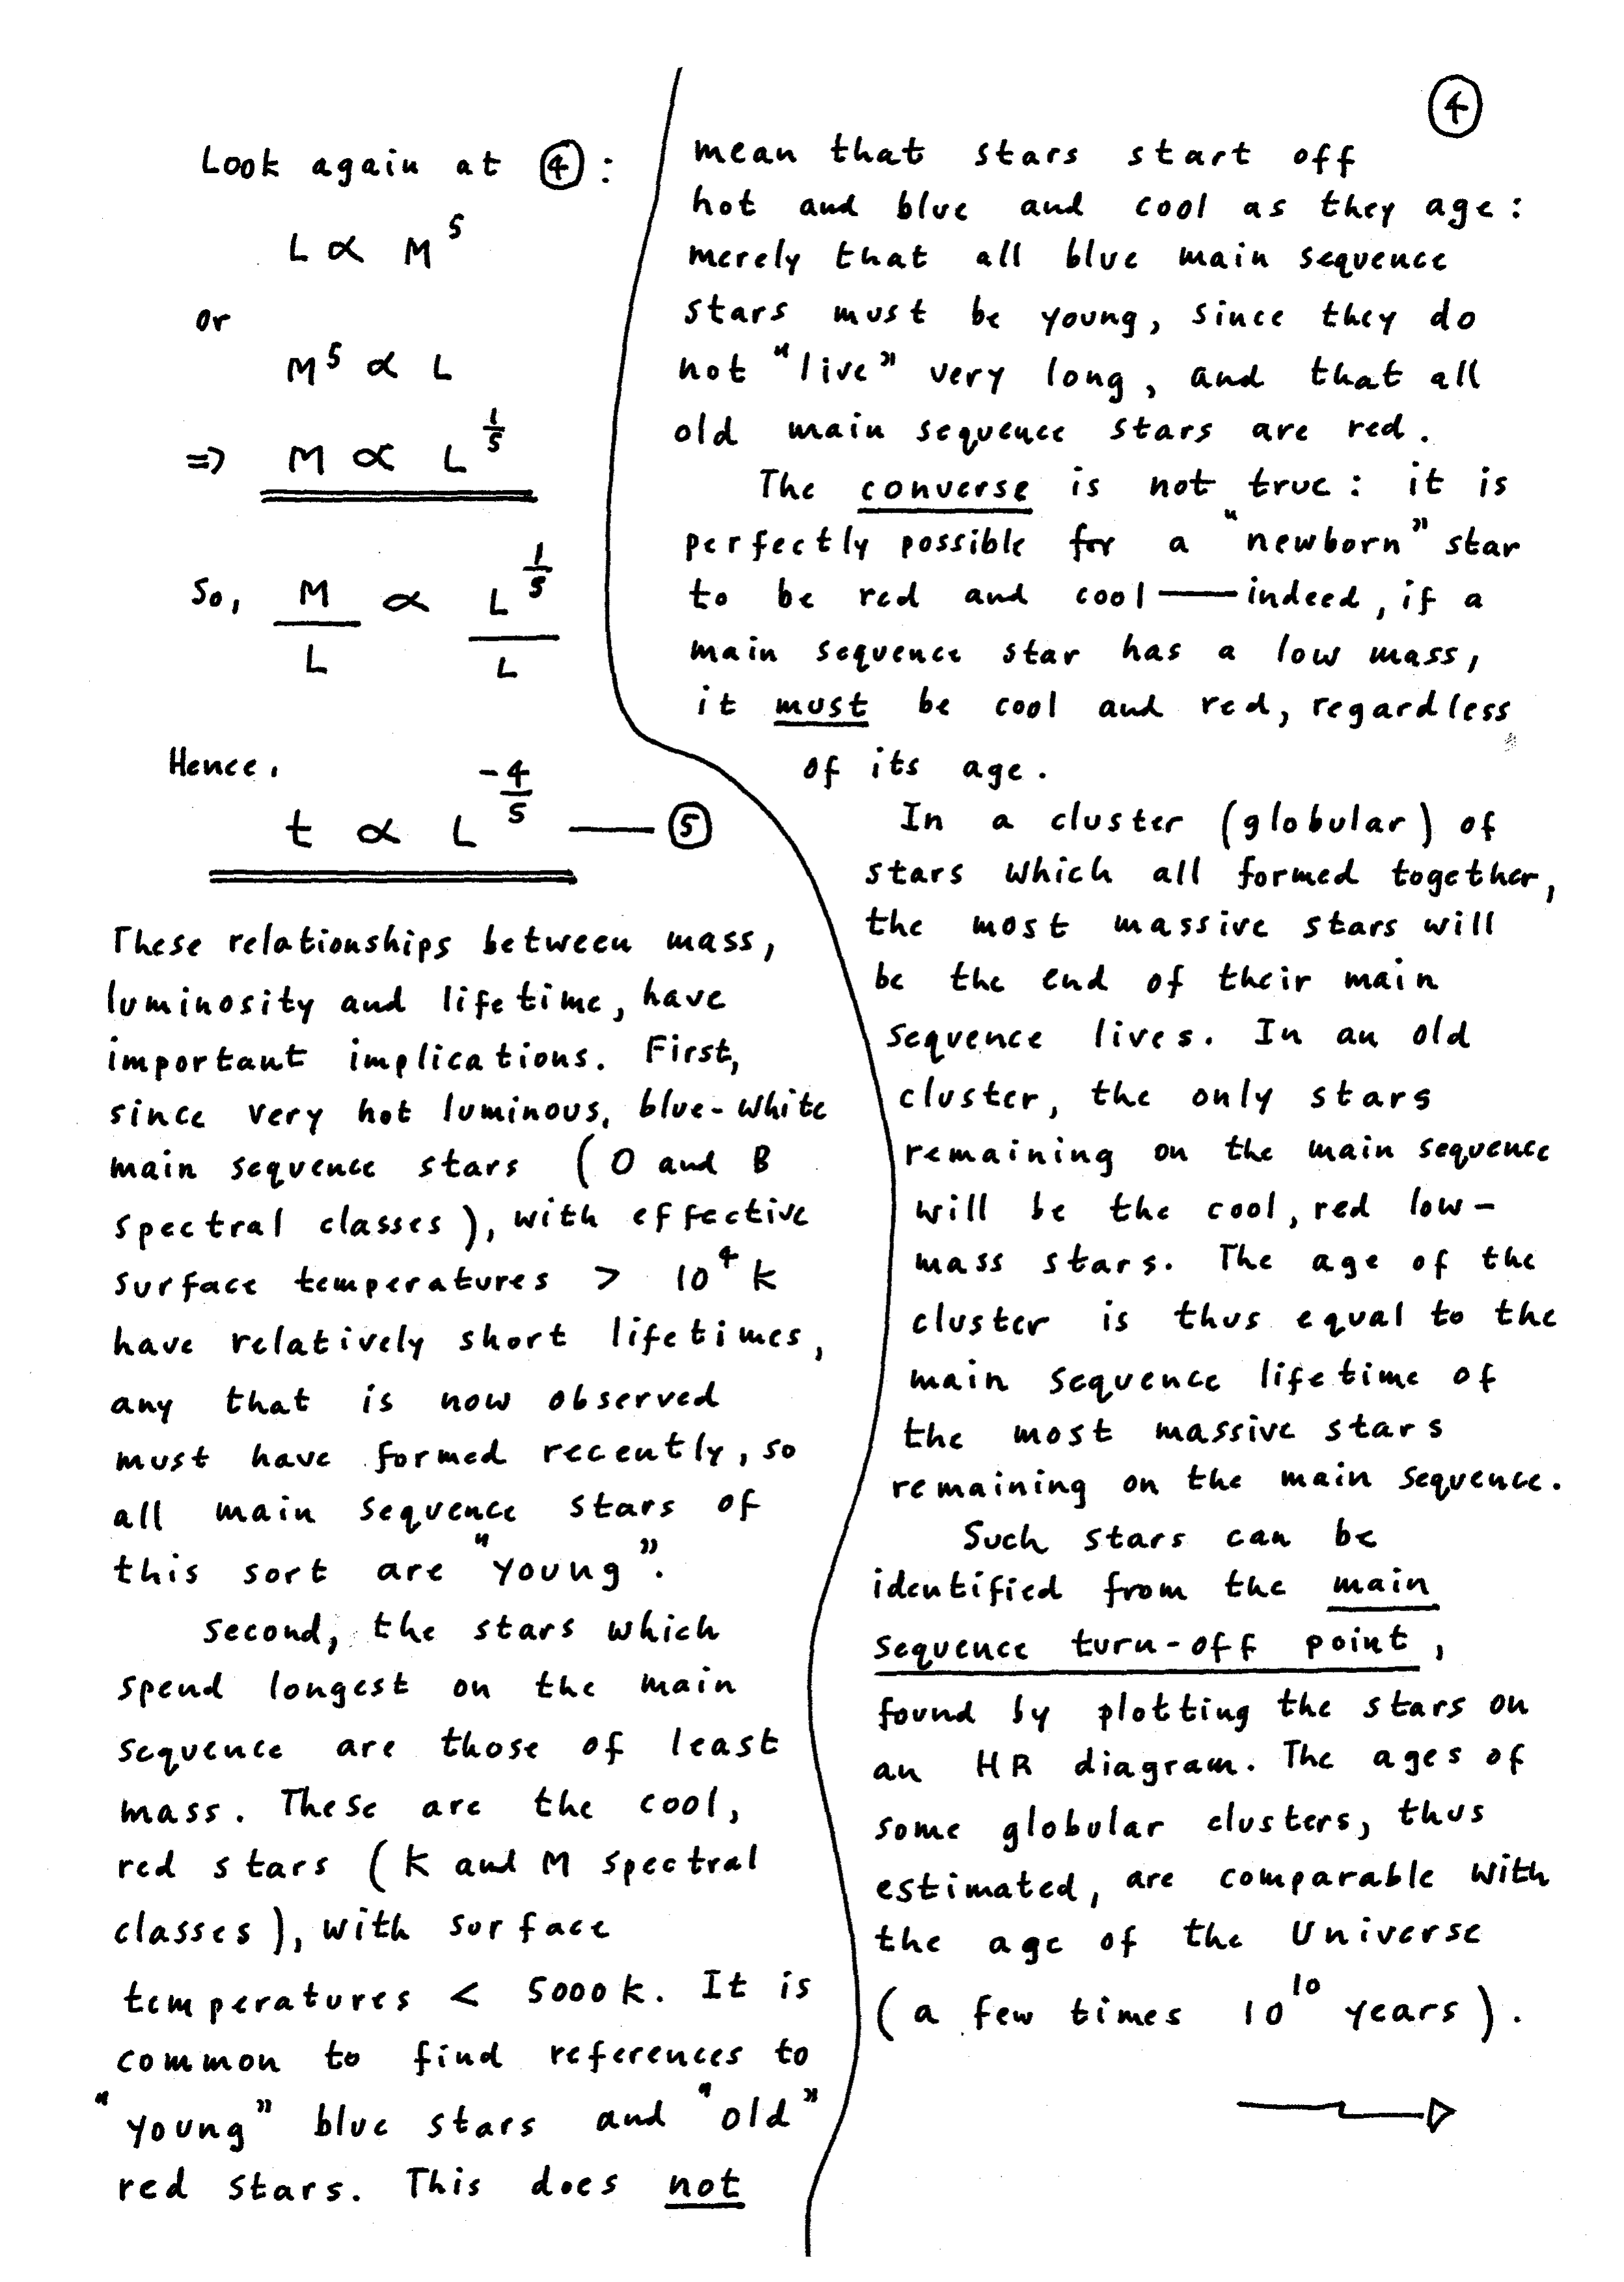 ④
Look again at ④ :
L ∝ M⁵
or
M⁵ ∝ L
=> M ∝ L^(1/5)
So, M/L ∝ L^(1/5)/L
Hence,
t ∝ L^(-4/5) — ⑤
These relationships between mass,
luminosity and lifetime, have
important implications. First,
since very hot luminous, blue-white
main sequence stars (O and B
spectral classes), with effective
surface temperatures > 10⁴ K
have relatively short lifetimes,
any that is now observed
must have formed recently, so
all main sequence stars of
this sort are "young".
Second, the stars which
spend longest on the main
sequence are those of least
mass. These are the cool,
red stars (K and M spectral
classes), with surface
temperatures < 5000 K. It is
common to find references to
"young" blue stars and "old"
red stars. This does not
mean that stars start off
hot and blue and cool as they age:
merely that all blue main sequence
stars must be young, since they do
not "live" very long, and that all
old main sequence stars are red.
The converse is not true: it is
perfectly possible for a "newborn" star
to be red and cool — indeed, if a
main sequence star has a low mass,
it must be cool and red, regardless
of its age.
In a cluster (globular) of
stars which all formed together,
the most massive stars will
be the end of their main
sequence lives. In an old
cluster, the only stars
remaining on the main sequence
will be the cool, red low-
mass stars. The age of the
cluster is thus equal to the
main sequence lifetime of
the most massive stars
remaining on the main sequence.
Such stars can be
identified from the main
sequence turn-off point,
found by plotting the stars on
an HR diagram. The ages of
some globular clusters, thus
estimated, are comparable with
the age of the Universe
(a few times 10¹⁰ years).